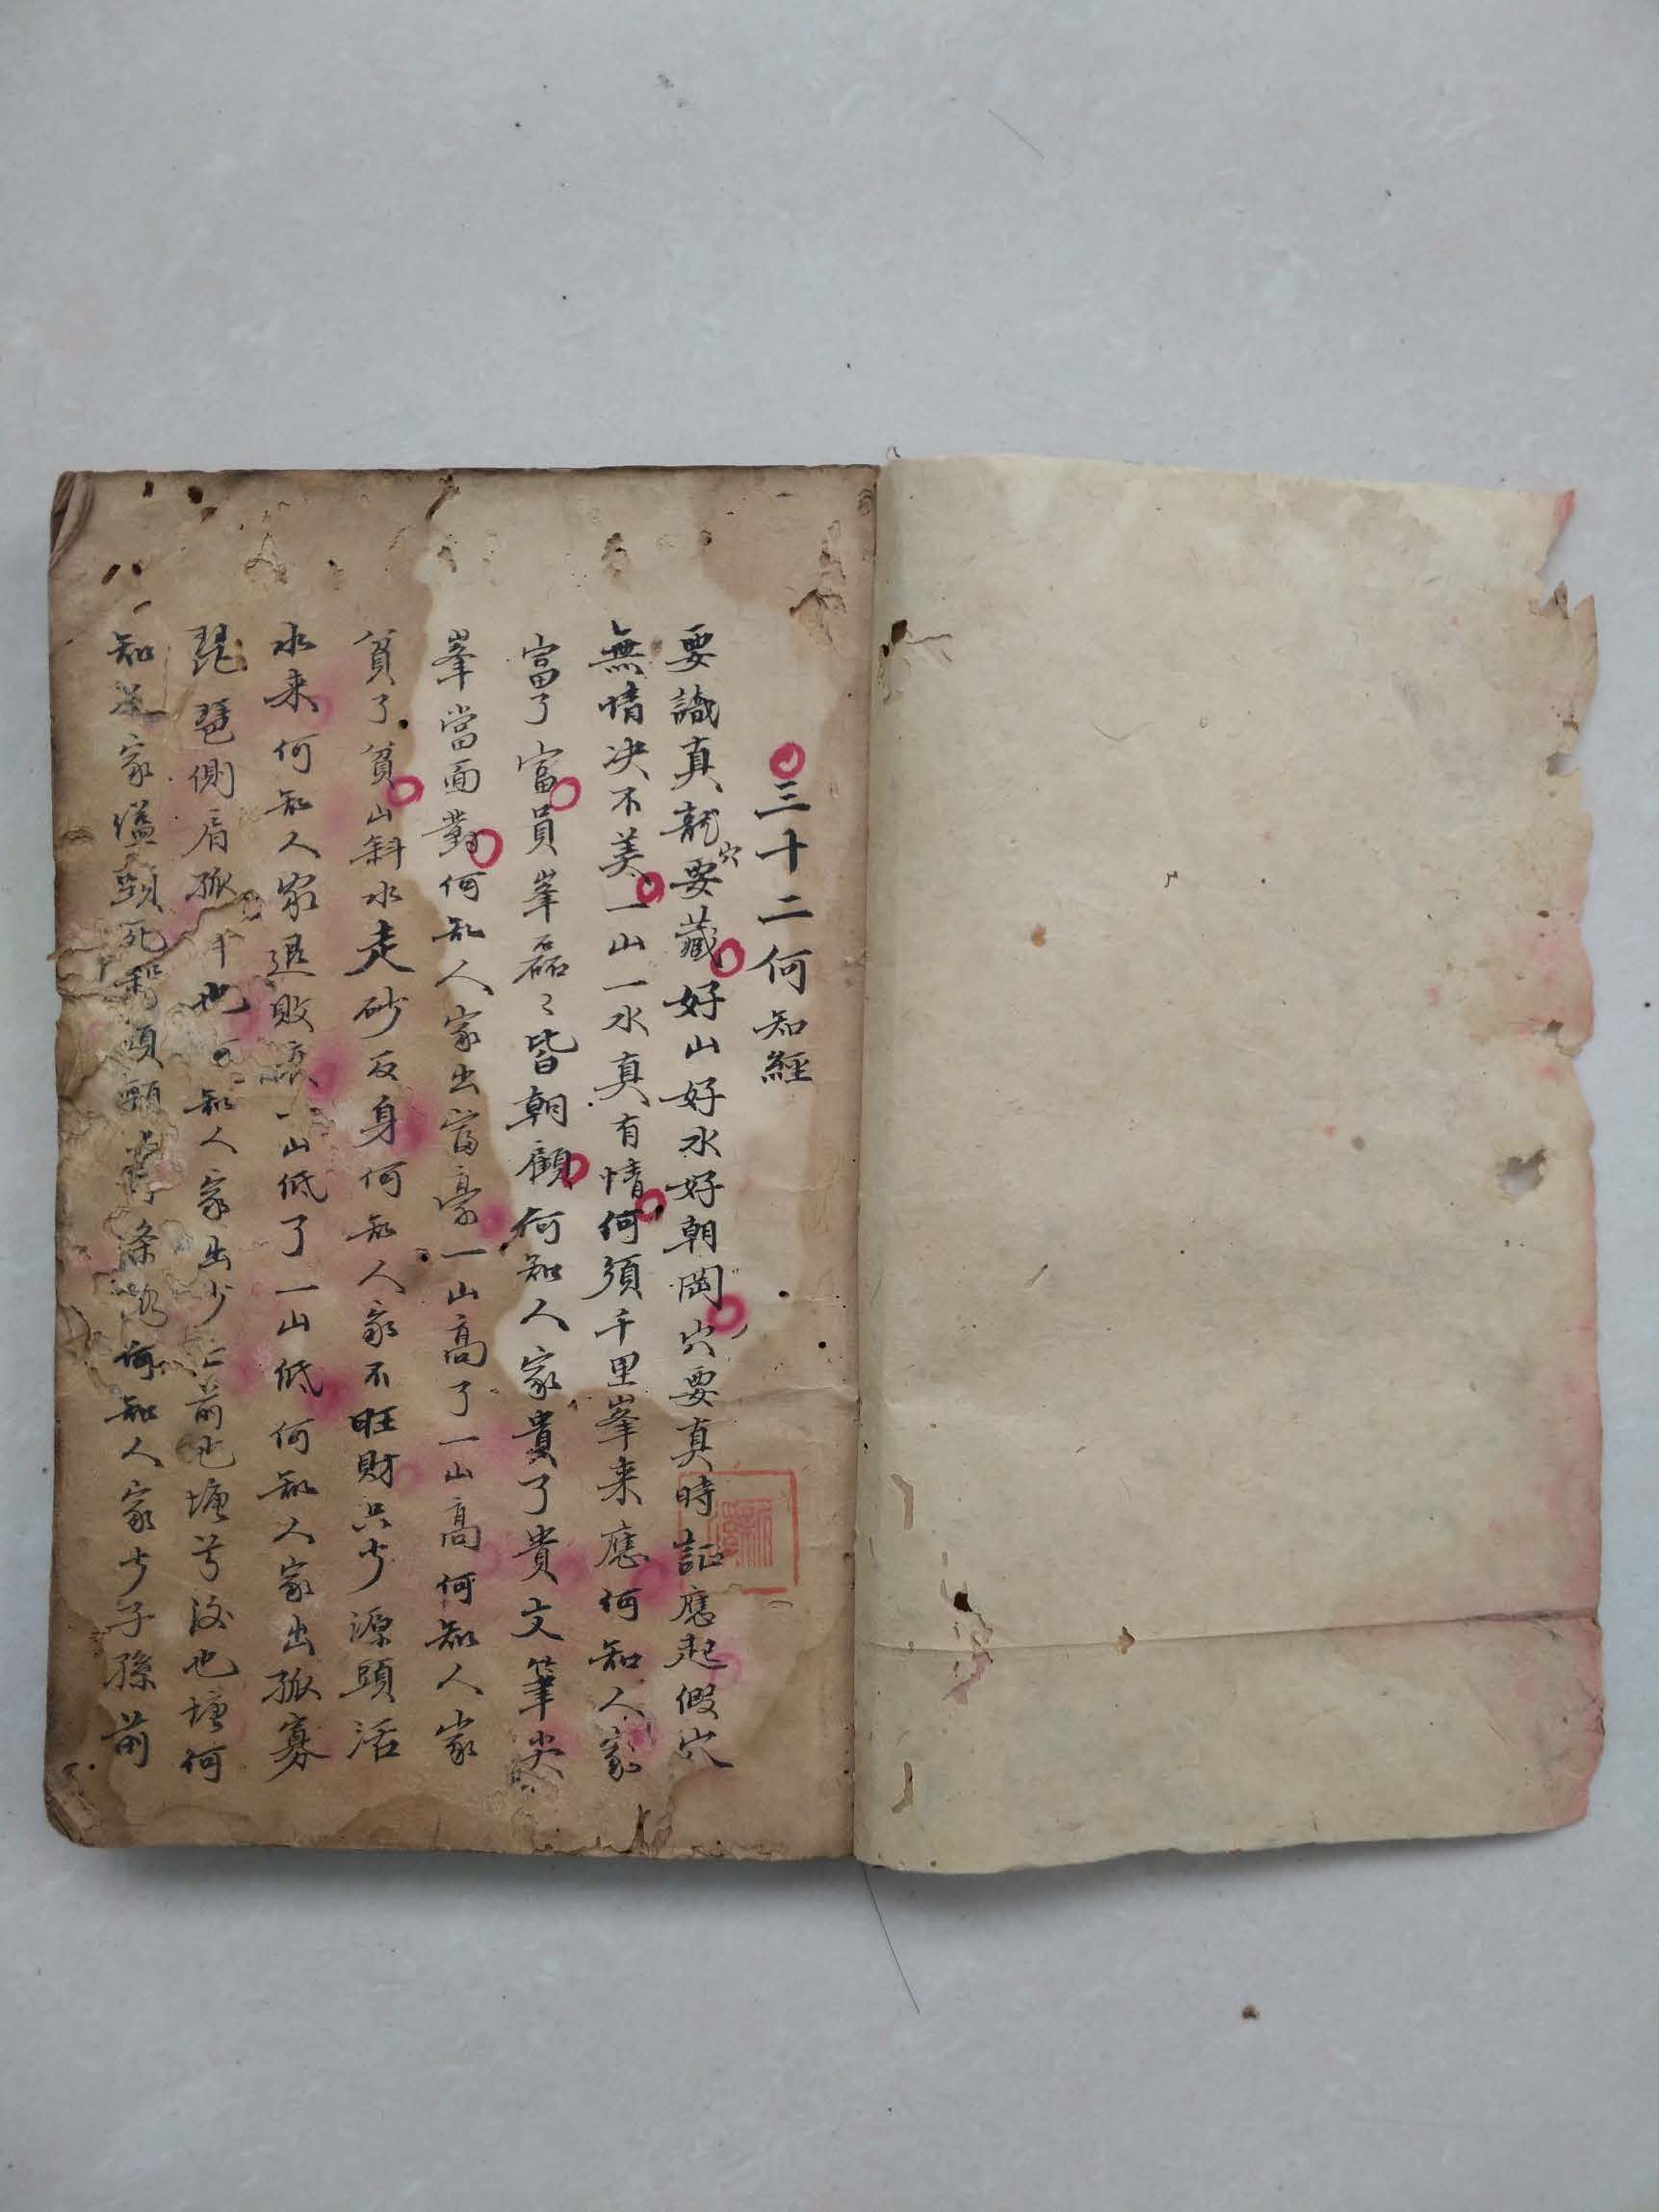 三十二何知經
要識真龍穴要藏好山好水好朝岡穴要真時証應起假穴
無情决不美一山一水真有情何須千里峯来應何知人家
富了富員峯磊〻皆朝顧何知人家貴了貴文筆尖
峯當面對何知人家出富豪一山高了一山高何知人家
貧了貧山斜水走砂反身何知人家不旺財只少源頭活
水来何知人家退敗 一山低了一山低何知人家出孤寡
琵琶側肩孤 也 知人家出少亡前也塘兮後也塘何
知 家縊頸死 頸 条路何知人家少子孫前